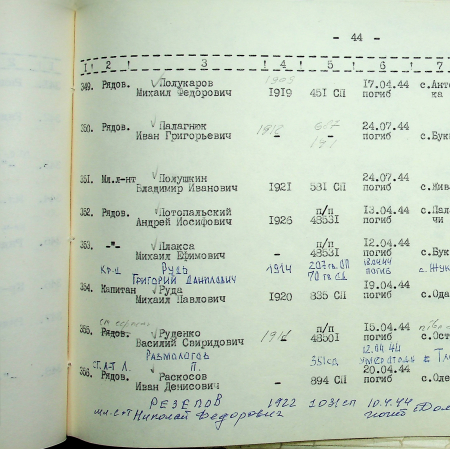 - 44 -
1 ! 2 ! 3 ! 4 ! 5 ! 6 ! 7
1905
349. Рядов. Полукаров 17.04.44 с.Анто
Михаил Федорович 1919 451 СП погиб ка
350. Рядов. Палагнюк 1912 24.07.44
Иван Григорьевич - - погиб с.Бук
351. Мл.л-нт Полушкин 24.07.44
Владимир Иванович 1921 531 СП погиб с.Жива
352. Рядов. Потопальский п/п 13.04.44 с.Пала
Андрей Иосифович 1926 48531 погиб чи
353. -"- Плакса п/п 12.04.44
Михаил Ефимович - 48531 погиб с.Бук
Кр-ц Рудь 1914 207 гв.СП 18.04.44 с.Жук
Григорий Данилович 70 гв.сд погиб
354. Капитан Руда 19.04.44
Михаил Павлович 1920 835 СП погиб с.Ода
355. Рядов. Руденко п/п 15.04.44
Василий Свиридович 48501 погиб с.Ост
Размологов 12.04.44
ст.л-т П. 351сд умер от ран
356. Рядов. Раскосов 20.04.44
Иван Денисович - 894 СП погиб с.Оле
Резепов 1922 1031сп 10.4.44
мл.с-т Николай Федорович погиб